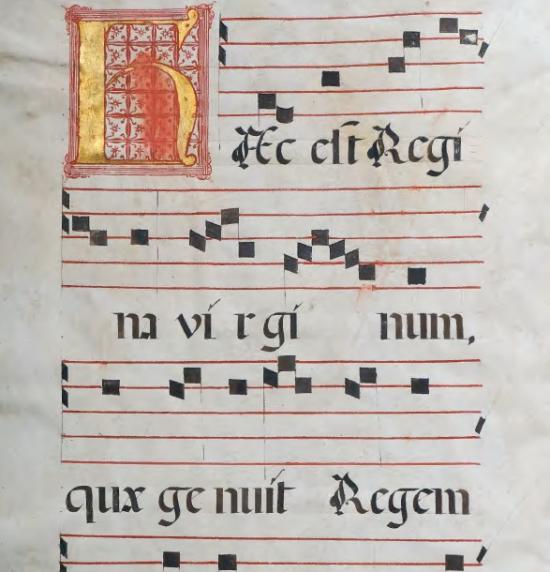 HÆc est Regi
na ví r gi num,
quæ ge nuit Regem